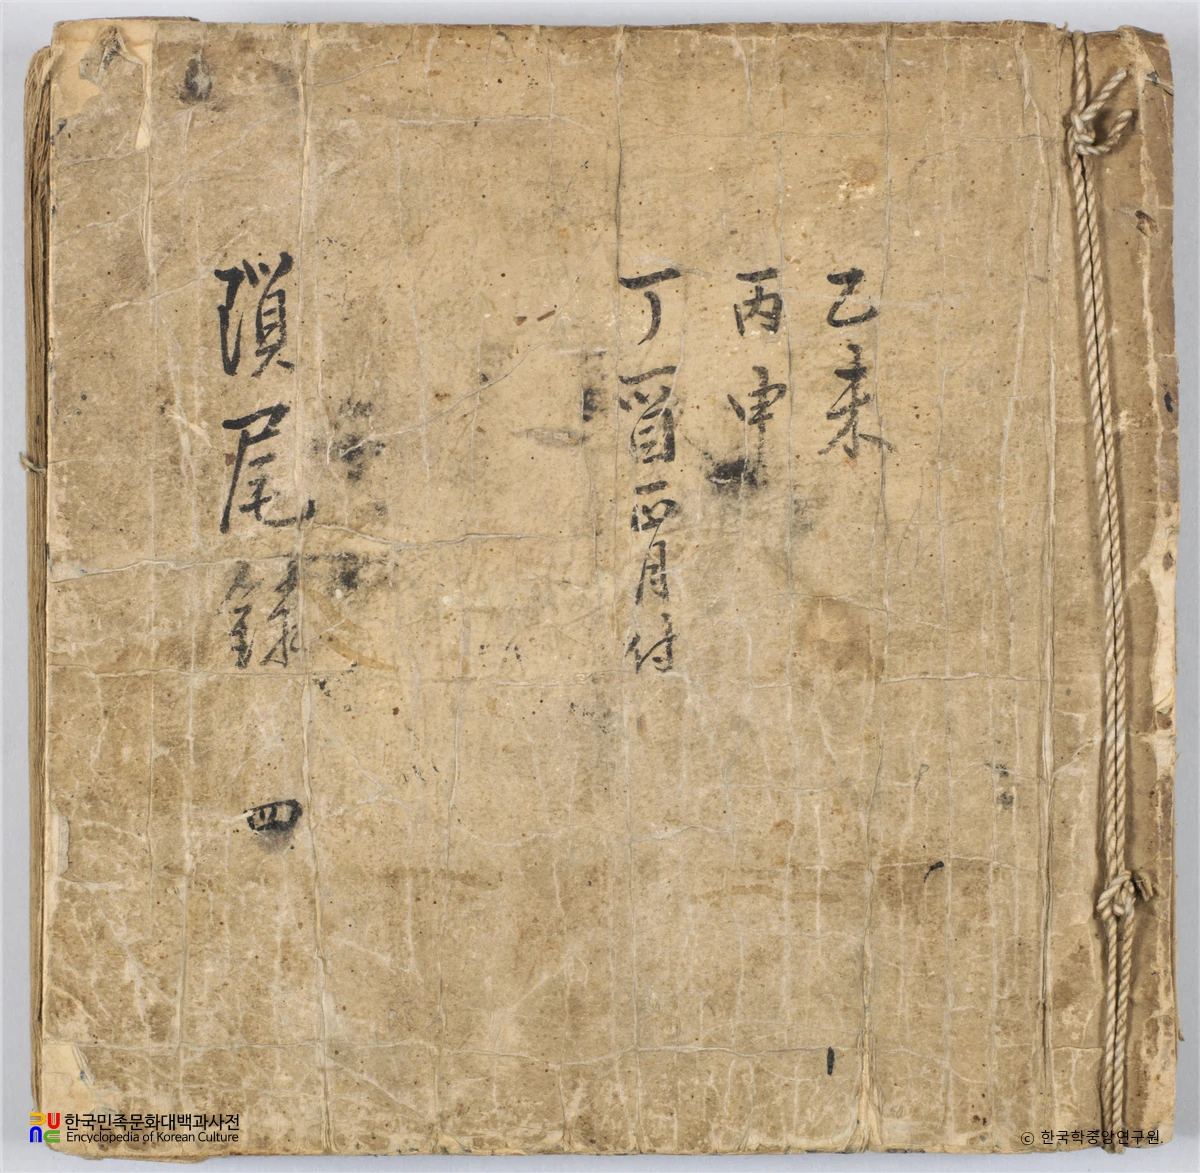 乙未
丙申
丁酉正月付
瑣尾錄
四
한국민족문화대백과사전
Encyclopedia of Korean Culture
© 한국학중앙연구원.